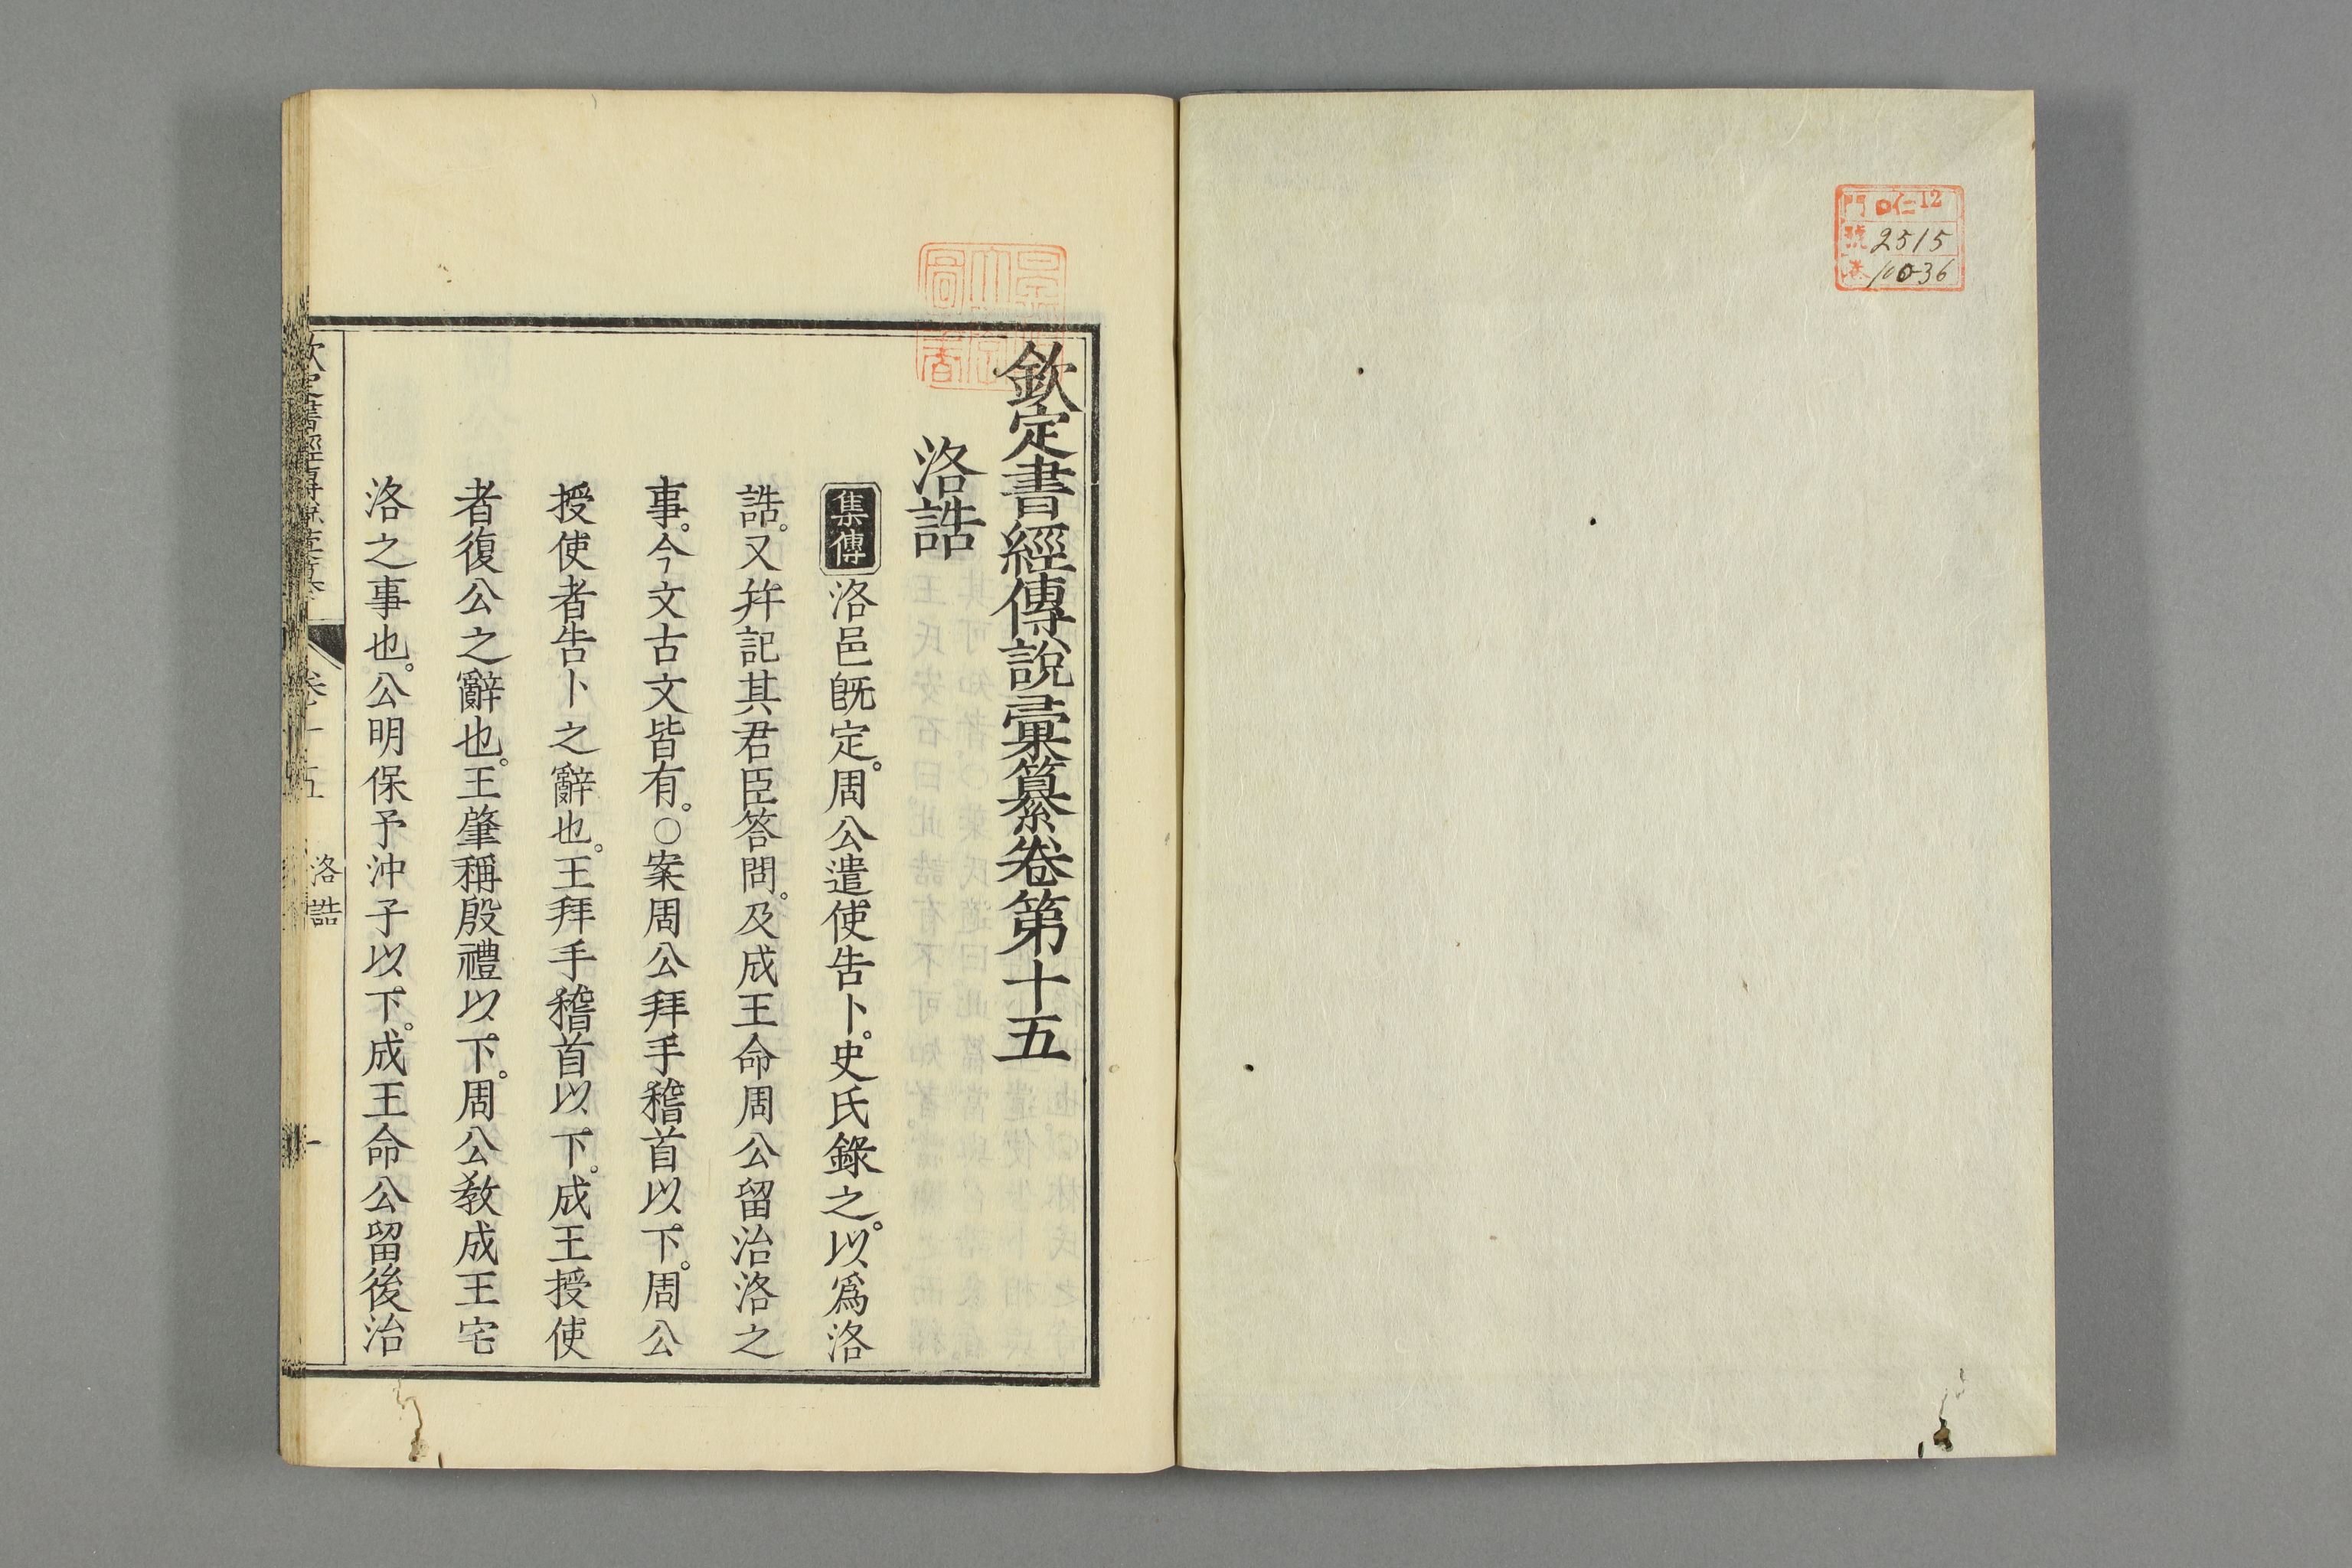 門 口仁12
號 2515
卷 10-36
欽定書經傳說彙纂卷第十五
洛誥
集傳 洛邑旣定。周公遣使告卜。史氏錄之。以爲洛
誥。又幷記其君臣答問。及成王命周公留治洛之
事。今文古文皆有。○案周公拜手稽首以下。周公
授使者告卜之辭也。王拜手稽首以下。成王授使
者復公之辭也。王肇稱殷禮以下。周公敎成王宅
洛之事也。公明保予沖子以下。成王命公留後治
欽定書經傳說彙纂 卷十五 洛誥 一